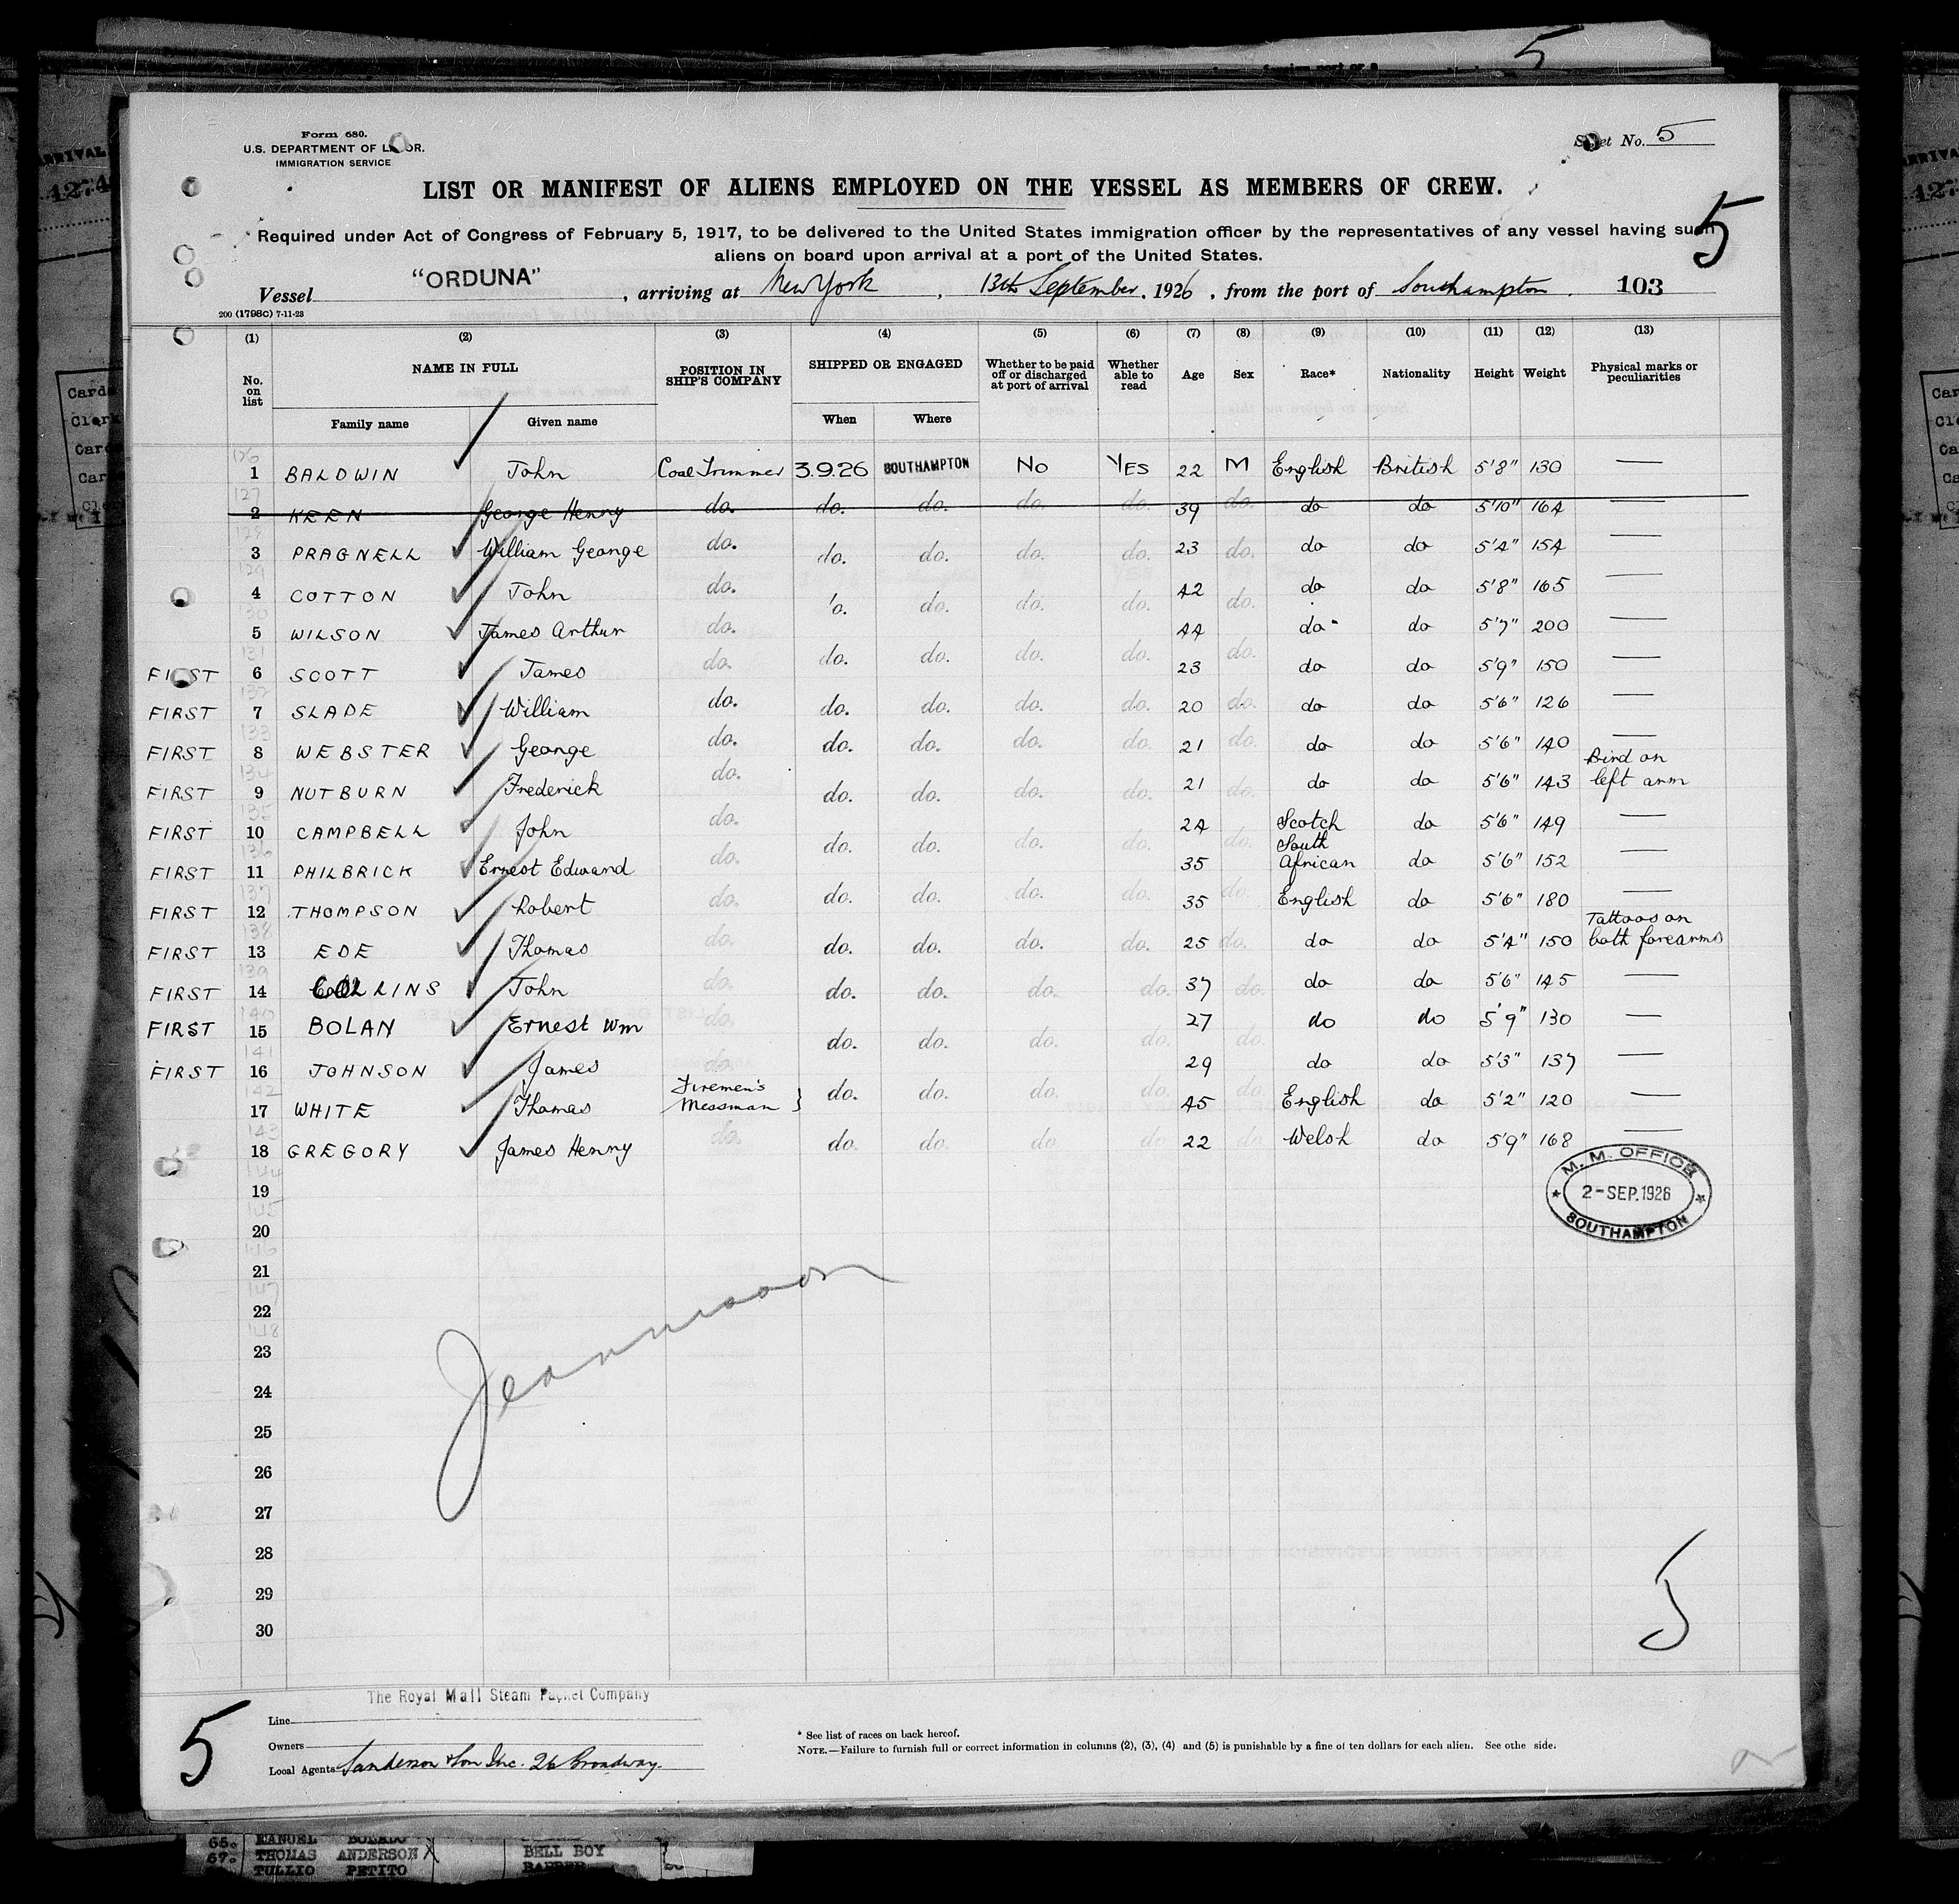 5
Form 680.
U.S. DEPARTMENT OF LABOR.
IMMIGRATION SERVICE
Sheet No. 5
LIST OR MANIFEST OF ALIENS EMPLOYED ON THE VESSEL AS MEMBERS OF CREW.
5
Required under Act of Congress of February 5, 1917, to be delivered to the United States immigration officer by the representatives of any vessel having such
aliens on board upon arrival at a port of the United States.
Vessel "ORDUNA", arriving at New York, 13th September, 1926, from the port of Southampton. 103
200 (1798C) 7-11-23
(1) (2) (3) (4) (5) (6) (7) (8) (9) (10) (11) (12) (13)
No. on list NAME IN FULL POSITION IN SHIP'S COMPANY SHIPPED OR ENGAGED Whether to be paid off or discharged at port of arrival Whether able to read Age Sex Race* Nationality Height Weight Physical marks or peculiarities
Family name Given name When Where
126 1 BALDWIN John Coal Trimmer 3.9.26 SOUTHAMPTON No YES 22 M English British 5'8" 130 —
127 2 KEEN George Henry do. do. do. do. do. 39 do. do do 5'10" 164 —
128 3 PRAGNELL William George do. do. do. do. do. 23 do. do do 5'4" 154 —
129 4 COTTON John do. 'o. do. do. do. 42 do. do do 5'8" 165 —
130 5 WILSON James Arthur do. do. do. do. do. 44 do. do do 5'7" 200 —
131 FIRST 6 SCOTT James do. 23 do do 5'9" 150 —
132 FIRST 7 SLADE William do. do. do. do. do. 20 do. do do 5'6" 126 —
133 FIRST 8 WEBSTER George do. do. do. do. do. 21 do. do do 5'6" 140 —
134 FIRST 9 NUTBURN Frederick do. do. do. do. do. 21 do. do do 5'6" 143 Bird on left arm
135 FIRST 10 CAMPBELL John do. do. do. do. do. 24 do. Scotch do 5'6" 149 —
136 FIRST 11 PHILBRICK Ernest Edward do. 35 South African do 5'6" 152 —
137 FIRST 12 THOMPSON Robert do. do. do. do. do. 35 do. English do 5'6" 180 —
138 FIRST 13 EDE Thomas do. do. do. do. do. 25 do. do do 5'4" 150 Tattoos on both forearms
139 FIRST 14 COLLINS John do. do. do. do. do. 37 do. do do 5'6" 145 —
140 FIRST 15 BOLAN Ernest Wm do. do. do. do. do. 27 do. do do 5'9" 130 —
141 FIRST 16 JOHNSON James do. 29 do do 5'3" 137 —
142 17 WHITE Thomas Firemen's Messman } do. do. do. do. 45 do. English do 5'2" 120 —
143 18 GREGORY James Henry do. do. do. do. do 22 do Welsh do 5'9" 168 —
M.M. OFFICE
2-SEP.1926
SOUTHAMPTON
144 19
145 20
146 21
147 22
148 23
24
25
26
27
28
29
30
5
5
The Royal Mail Steam Packet Company
Line
Owners
Local Agents Sanderson & Son Inc. 26 Broadway.
* See list of races on back hereof.
NOTE.—Failure to furnish full or correct information in columns (2), (3), (4) and (5) is punishable by a fine of ten dollars for each alien. See othe side.
65.
67. THOMAS ANDERSON X BELL BOY
TULLIO PETITO